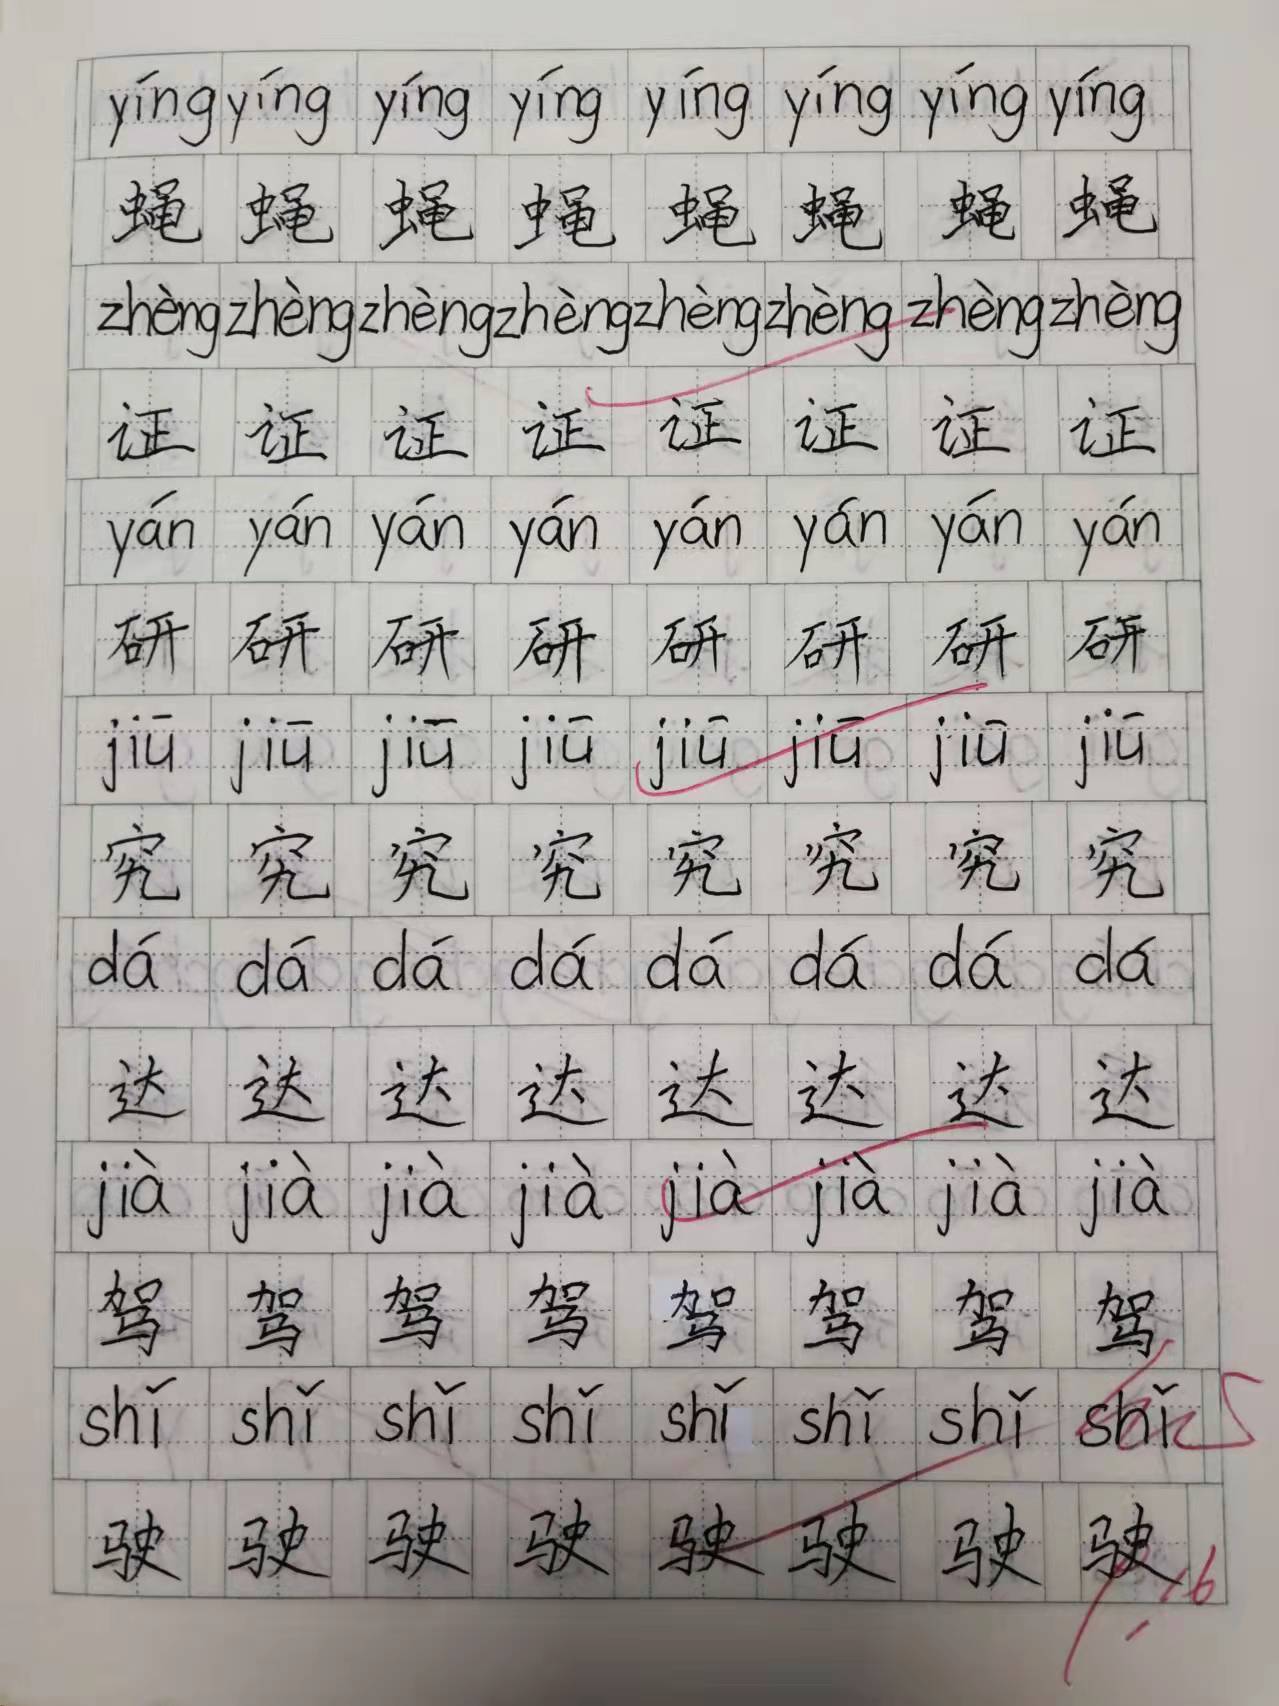 yíng yíng yíng yíng yíng yíng yíng yíng
蝇 蝇 蝇 蝇 蝇 蝇 蝇 蝇
zhèng zhèng zhèng zhèng zhèng zhèng zhèng zhèng
证 证 证 证 证 证 证 证
yán yán yán yán yán yán yán yán
研 研 研 研 研 研 研 研
jiū jiū jiū jiū jiū jiū jiū jiū
究 究 究 究 究 究 究 究
dá dá dá dá dá dá dá dá
达 达 达 达 达 达 达 达
jià jià jià jià jià jià jià jià
驾 驾 驾 驾 驾 驾 驾 驾
shǐ shǐ shǐ shǐ shǐ shǐ shǐ shǐ
驶 驶 驶 驶 驶 驶 驶 驶